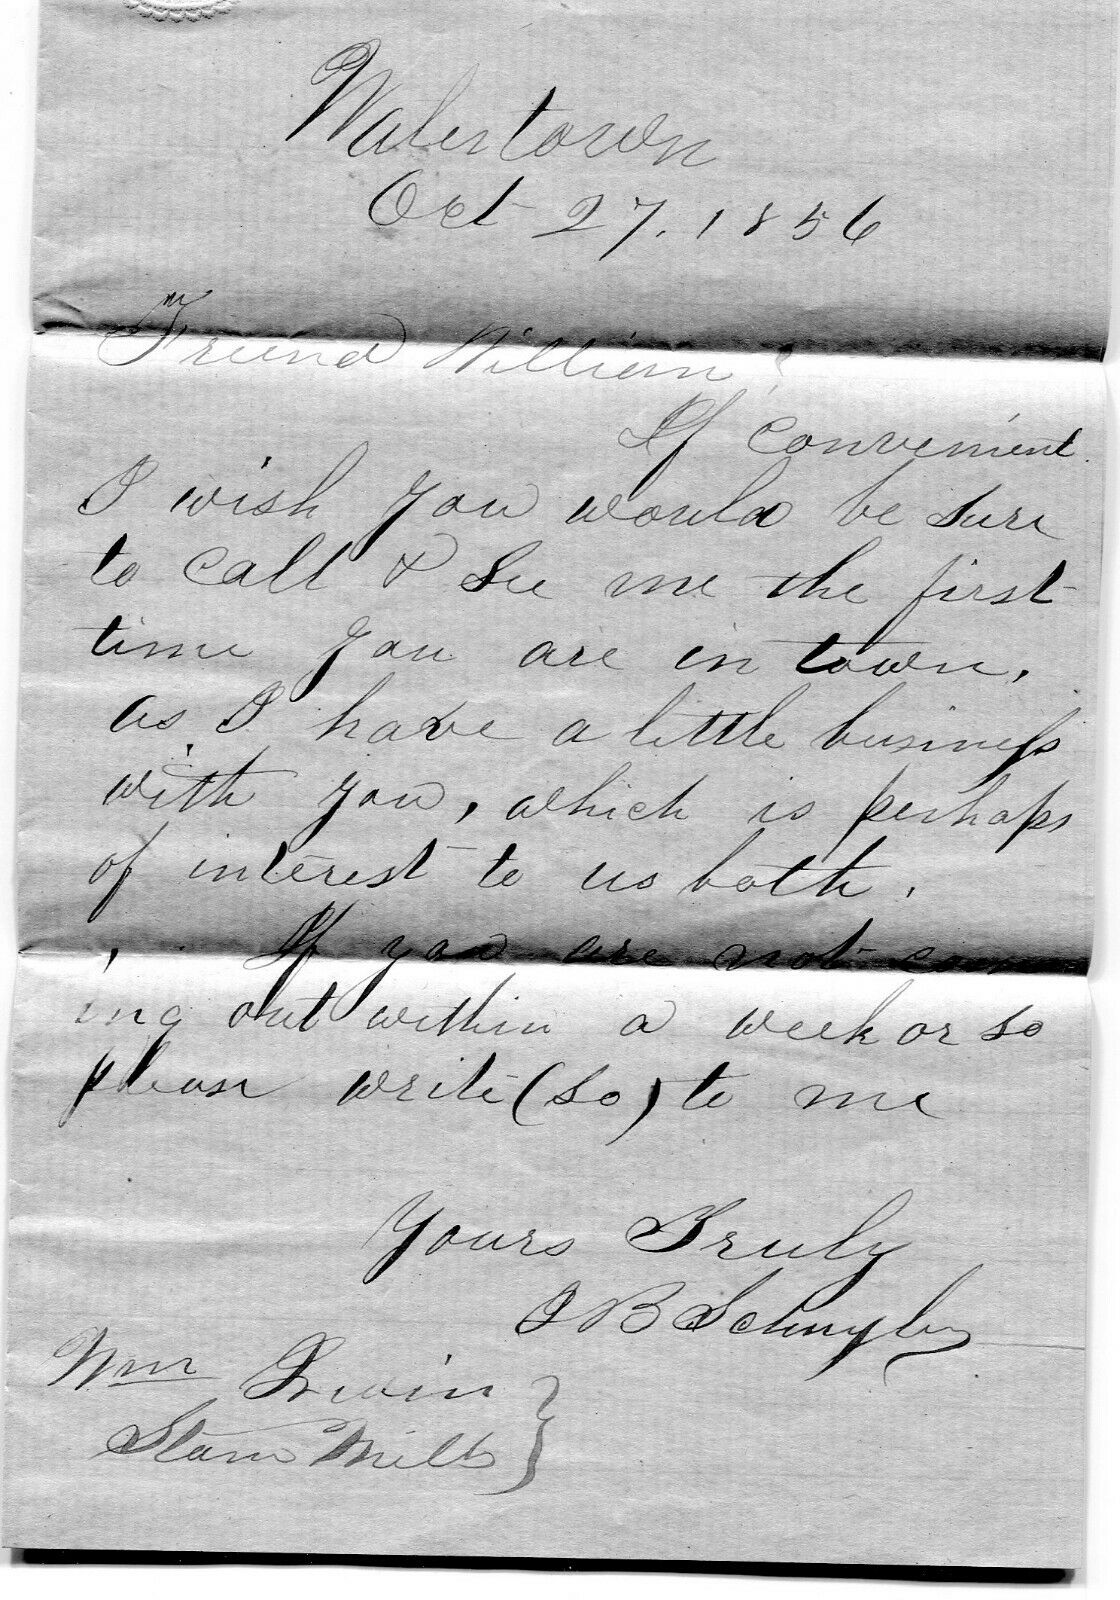 Watertown
Oct 27, 1856
Friend William;
If convenient
I wish you would be sure
to call & see me the first
time you are in town,
as I have a little business
with you, which is perhaps
of interest to us both.
If you are not com
ing out within a week or so
please write (so) to me
Yours Truly
J B
Wm Irwin
Steam Mills